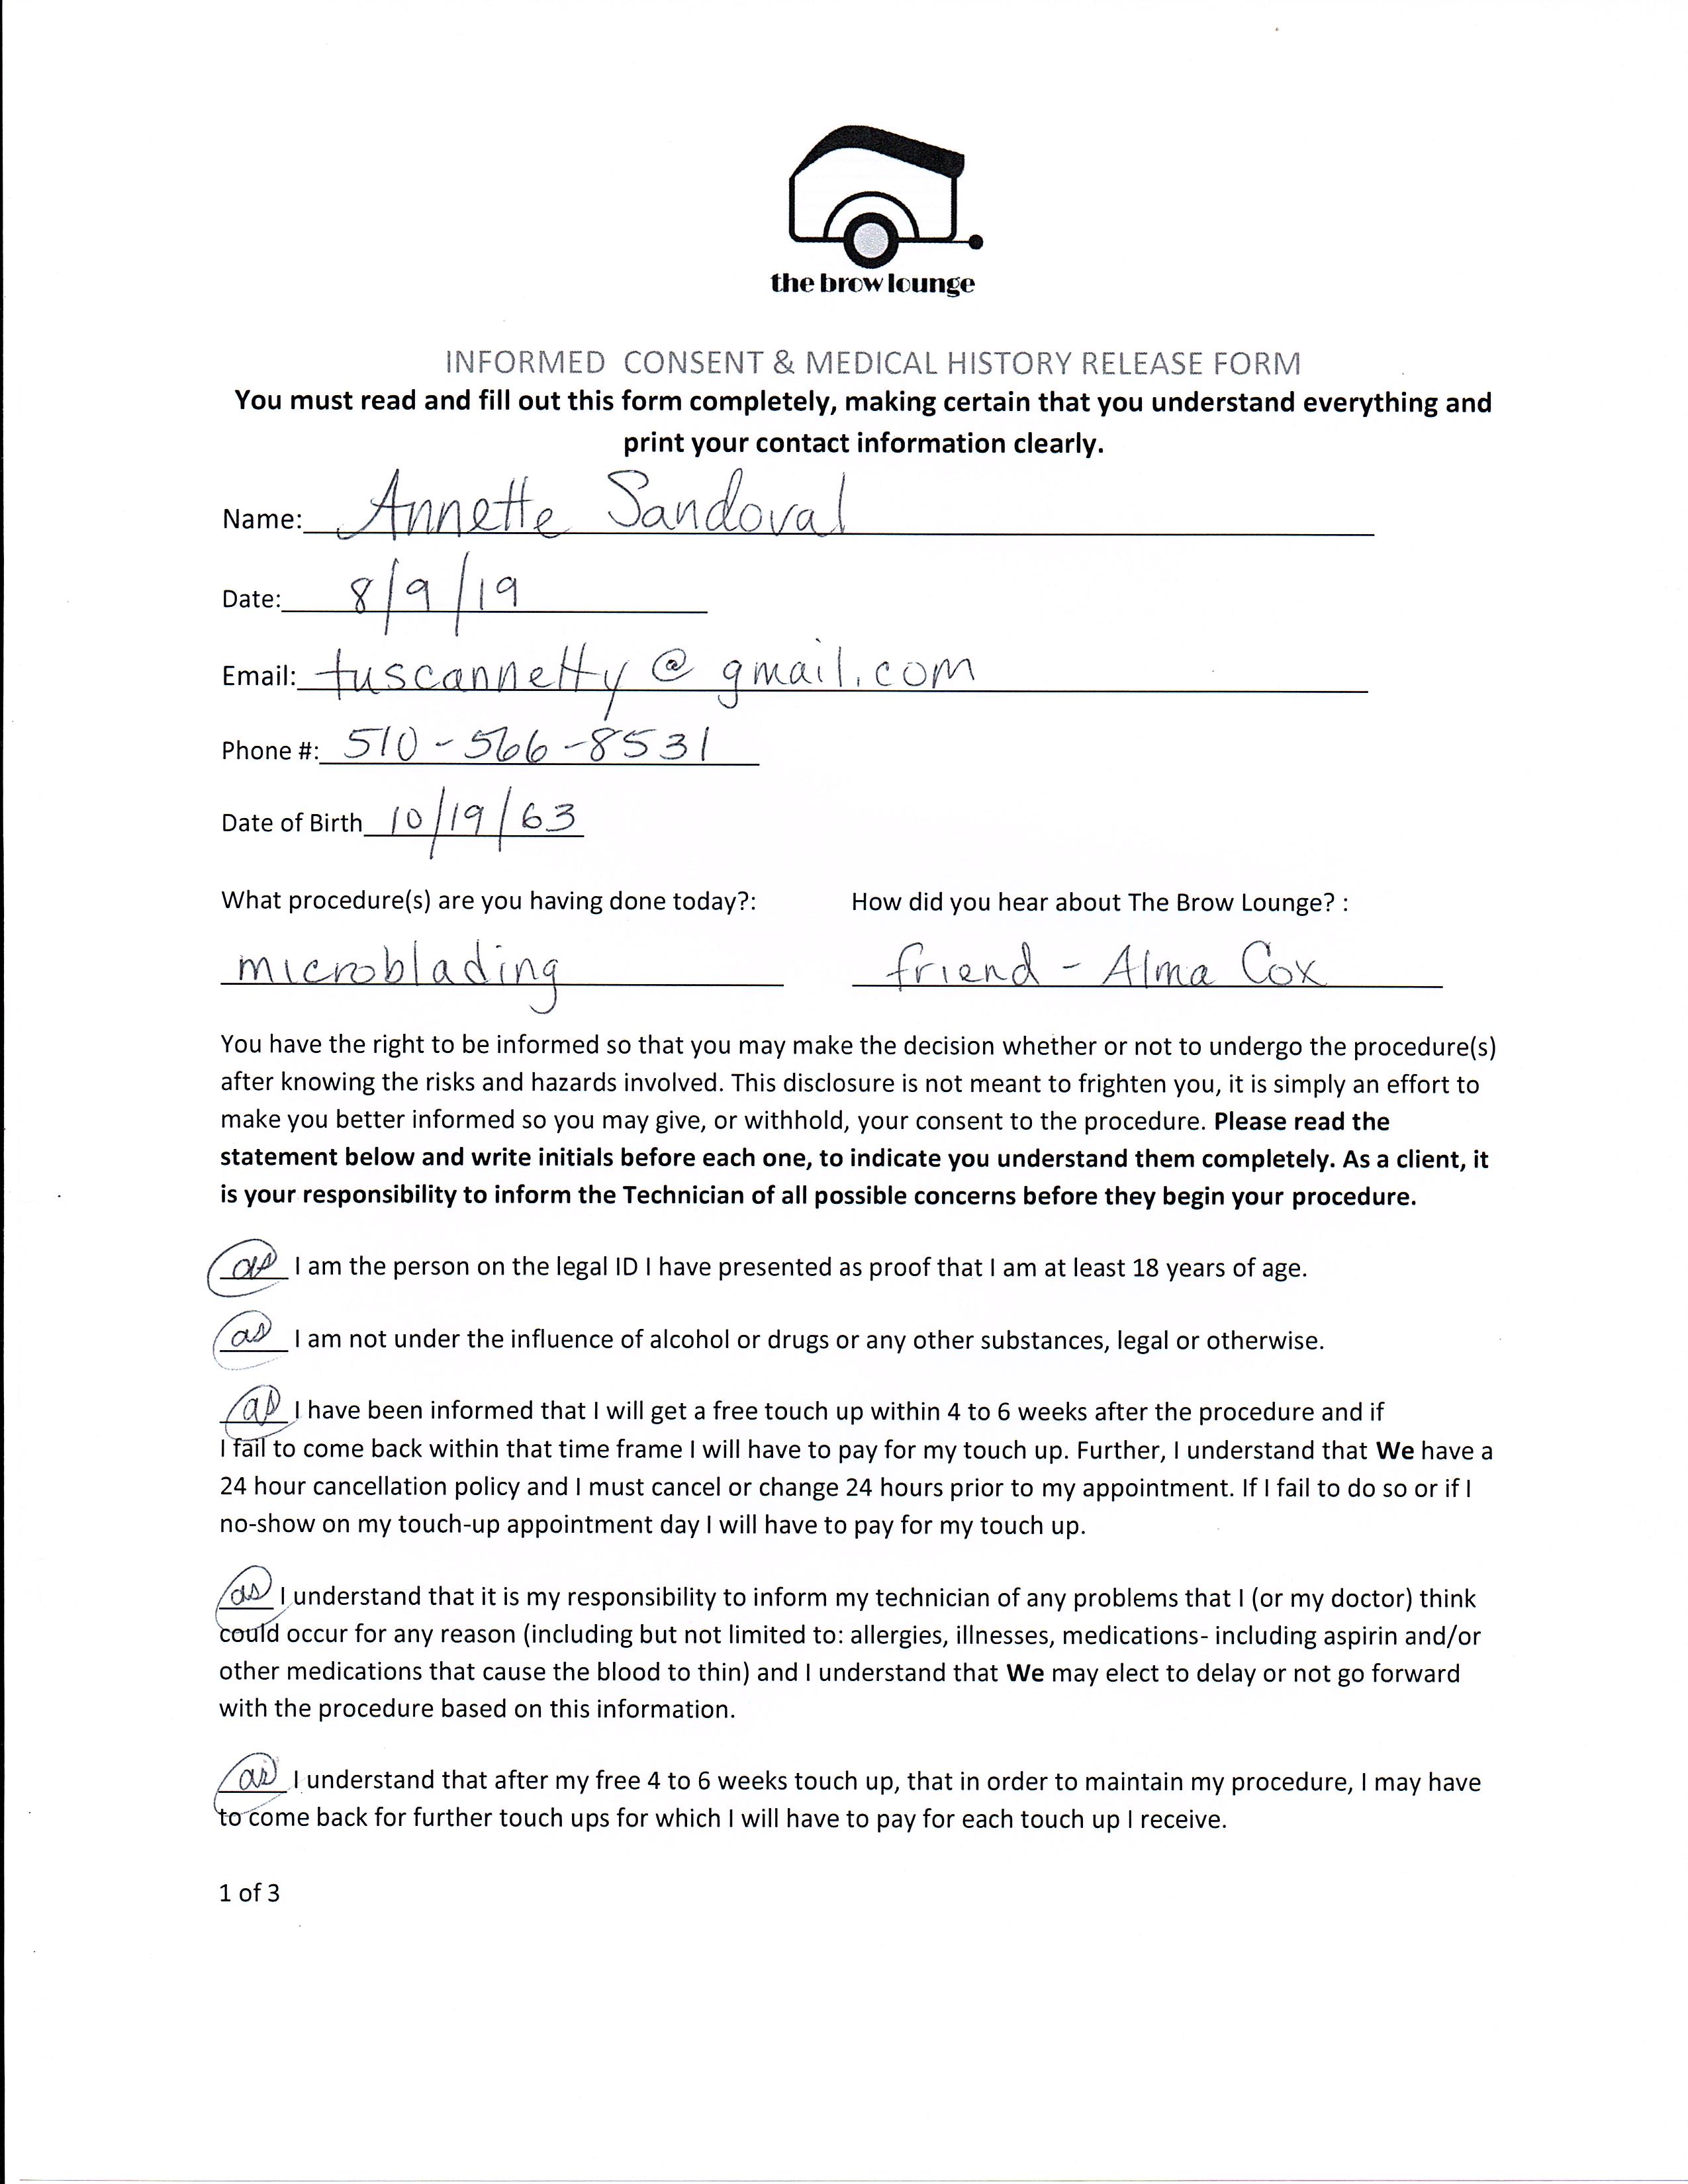 the brow lounge
INFORMED CONSENT & MEDICAL HISTORY RELEASE FORM
You must read and fill out this form completely, making certain that you understand everything and
print your contact information clearly.
Name: Annette Sandoval
Date: 8/9/19
Email: tuscannetty@gmail.com
Phone #: 510-566-8531
Date of Birth 10/19/63
What procedure(s) are you having done today?: How did you hear about The Brow Lounge? :
microblading friend - Alma Cox
You have the right to be informed so that you may make the decision whether or not to undergo the procedure(s)
after knowing the risks and hazards involved. This disclosure is not meant to frighten you, it is simply an effort to
make you better informed so you may give, or withhold, your consent to the procedure. Please read the
statement below and write initials before each one, to indicate you understand them completely. As a client, it
is your responsibility to inform the Technician of all possible concerns before they begin your procedure.
as I am the person on the legal ID I have presented as proof that I am at least 18 years of age.
as I am not under the influence of alcohol or drugs or any other substances, legal or otherwise.
as I have been informed that I will get a free touch up within 4 to 6 weeks after the procedure and if
I fail to come back within that time frame I will have to pay for my touch up. Further, I understand that We have a
24 hour cancellation policy and I must cancel or change 24 hours prior to my appointment. If I fail to do so or if I
no-show on my touch-up appointment day I will have to pay for my touch up.
as I understand that it is my responsibility to inform my technician of any problems that I (or my doctor) think
could occur for any reason (including but not limited to: allergies, illnesses, medications- including aspirin and/or
other medications that cause the blood to thin) and I understand that We may elect to delay or not go forward
with the procedure based on this information.
as I understand that after my free 4 to 6 weeks touch up, that in order to maintain my procedure, I may have
to come back for further touch ups for which I will have to pay for each touch up I receive.
1 of 3